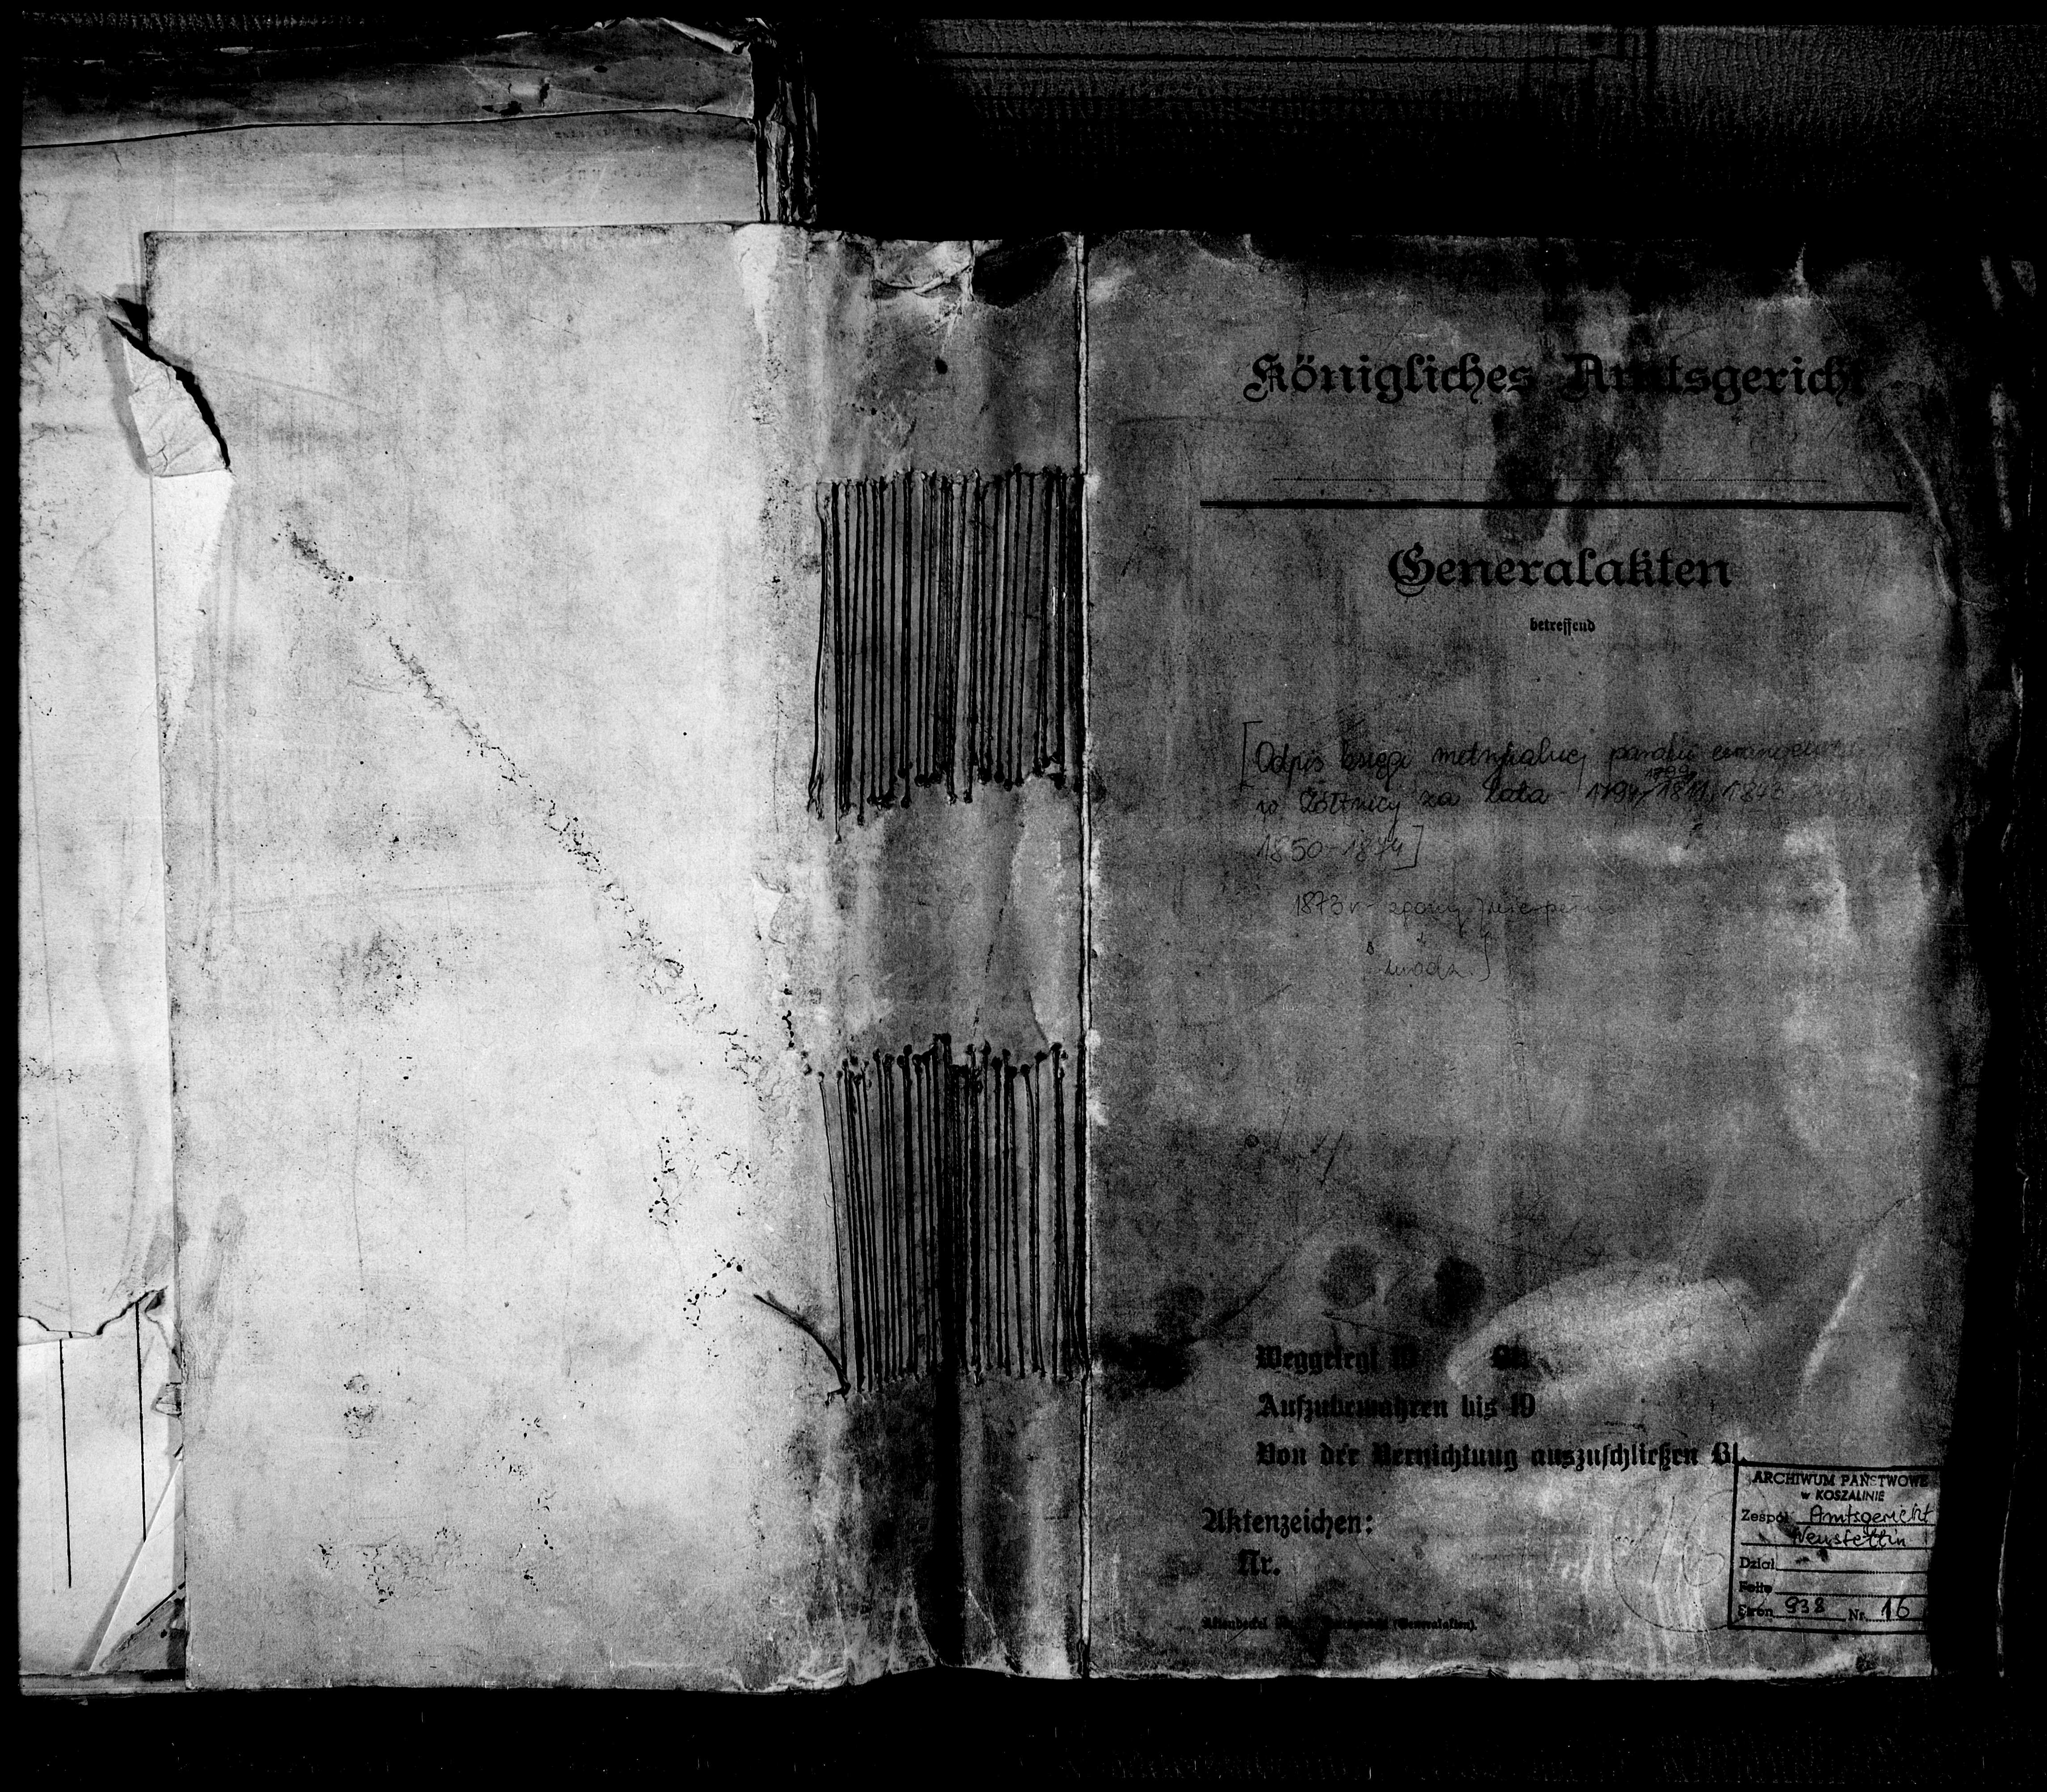 Königliches Amtsgericht
Generalakten
betreffend
[Odpis księgi metrykalnej parafii
w Żółtnicy za lata 1794, 1811, 1843
1850-1874]
1873 r. zgony
Weggelegt 19
Aufzubewahren bis 19
Von der Vernichtung auszuschließen Bl.
Aktenzeichen:
Nr.
(Generalakten).
16
ARCHIWUM PAŃSTWOWE
w KOSZALINIE
Zespół Amtsgericht
Neustettin
Dział
Stron 938 Nr. 16